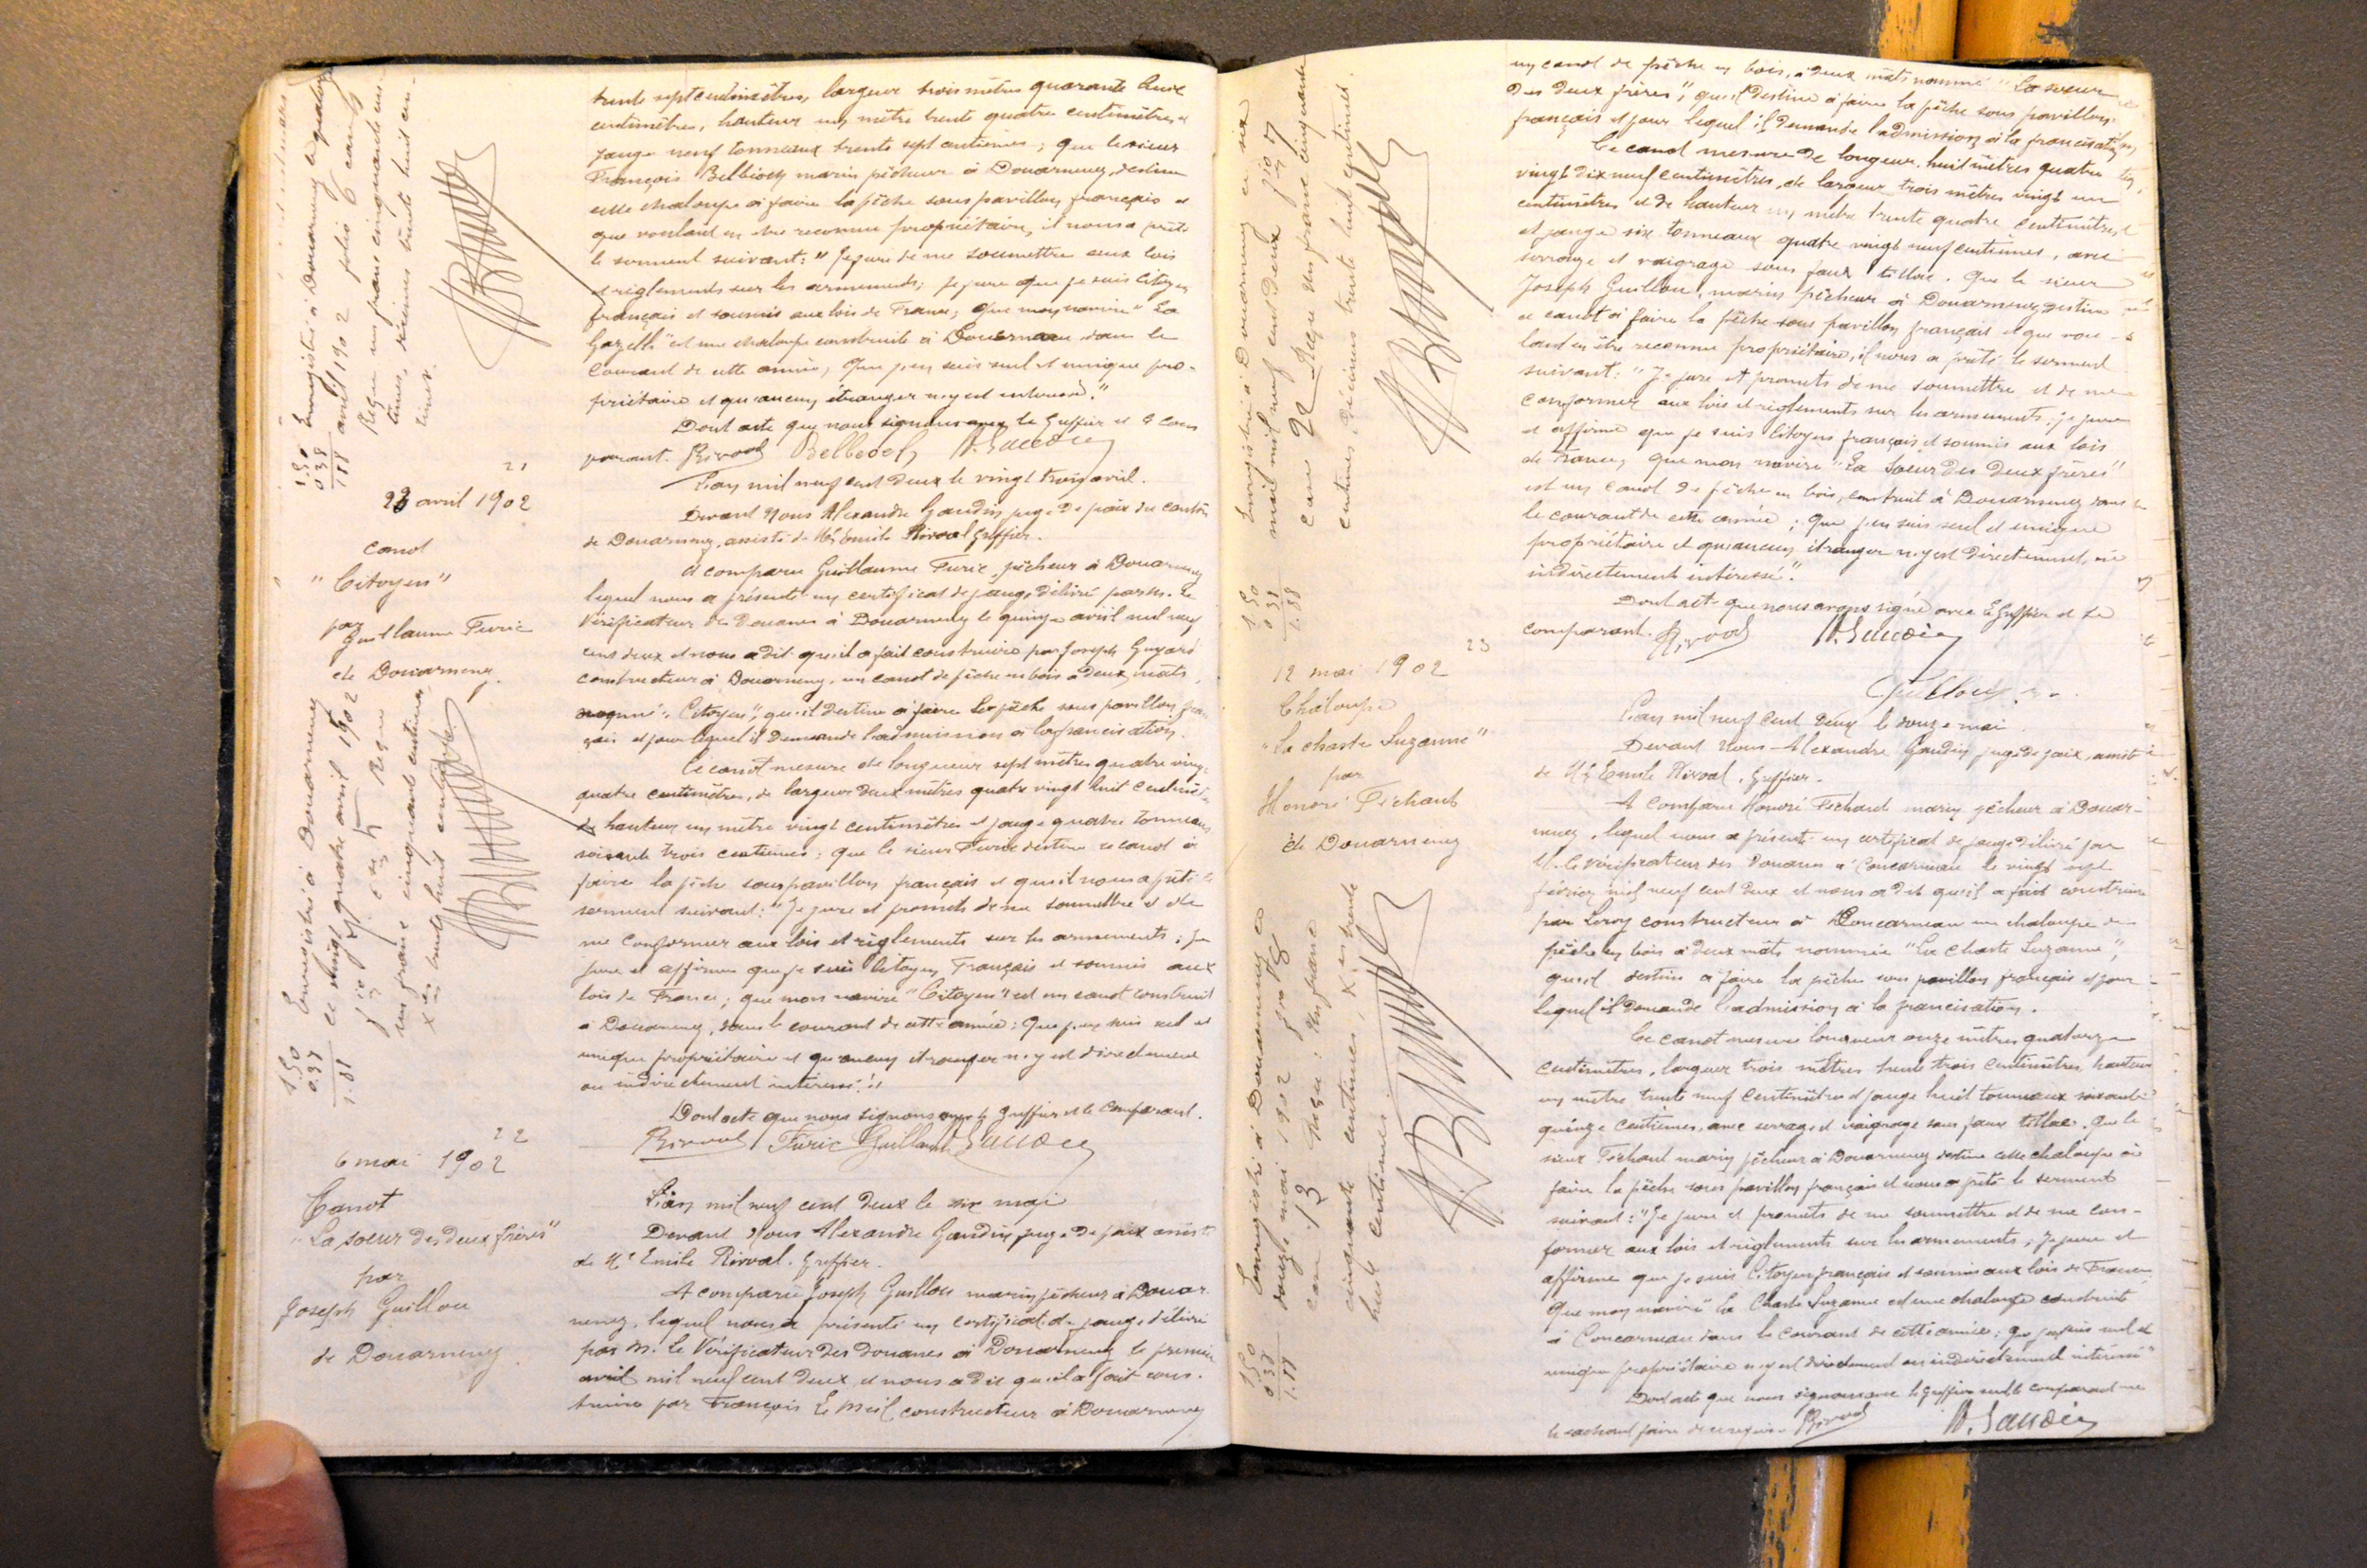 trente sept centimètres, largeur trois mètres quarante deux
centimètres, hauteur un mètre trente quatre centimètres et
jauge neuf tonneaux trente sept centièmes; que le sieur
François Belbéoch marin pêcheur à Douarnenez, destine
cette chaloupe à faire la pêche sous pavillon français et
que voulant en être reconnu propriétaire, il nous a prêté
le serment suivant: "Je jure de me soumettre aux lois
et règlements sur les armements; je jure que je suis citoyen
français et soumis aux lois de France; que mon navire "La
Gazelle" est une chaloupe construite à Douarnenez dans le
courant de cette année, que j'en suis seul et unique pro-
priétaire et qu'aucun étranger n'y est intéressé."
Dont acte que nous signons avec le Greffier et le com
parant. Rivoal Belbeoch A. Gaudin
Enregistré à Douarnenez le quatorze
avril 1902 folio 6 case
Reçu un franc cinquante cen-
times, décimes trente huit cen-
times.
1.50
0.38
1.88
21
23 avril 1902
canot
"Citoyen"
par
Guillaume Furic
de Douarnenez.
L'an mil neuf cent deux le vingt trois avril.
Devant Nous Alexandre Gaudin juge de paix du canton
de Douarnenez, assisté de Me Emile Rivoal greffier.
A comparu Guillaume Furic, pêcheur à Douarnenez
lequel nous a présenté un certificat de jauge délivré par M. le
Vérificateur des Douanes à Douarnenez le quinze avril mil neuf
cent deux et nous a dit qu'il a fait construire par Joseph Guyard
constructeur à Douarnenez, un canot de pêche en bois à deux mâts,
nommé "Citoyen", qu'il destine à faire la pêche sous pavillon fran
çais et pour lequel il demande l'admission à la francisation.
Ce canot mesure de longueur sept mètres quatre vingt
quatre centimètres, de largeur deux mètres quatre vingt huit centimètres
de hauteur un mètre vingt centimètres et jauge quatre tonneaux
soixante trois centièmes; que le sieur Furic destine ce canot à
faire la pêche sous pavillon français et qu'il nous a prêté le
serment suivant: "Je jure et promets de me soumettre et de
me conformer aux lois et règlements sur les armements; je
jure et affirme que je suis citoyen Français et soumis aux
lois de France; que mon navire "Citoyen" est un canot construit
à Douarnenez, dans le courant de cette année; que j'en suis seul et
unique propriétaire et qu'aucun étranger n'y est directement
ou indirectement intéressé".
Dont acte que nous signons avec le greffier et le comparant.
Rivoal Furic Guillaume A. Gaudin
Enregistré à Douarnenez
le vingt quatre avril 1902
Reçu
un franc cinquante centimes,
Xes trente huit centimes
1.50
0.38
1.88
22
6 mai 1902
Canot
"La soeur des deux frères"
par
Joseph Guillou
de Douarnenez.
L'an mil neuf cent deux le six mai
Devant Nous Alexandre Gaudin juge de paix assisté
de Me Emile Rivoal. Greffier.
A comparu Joseph Guillou marin pêcheur à Douar
nenez, lequel nous a présenté un certificat de jauge délivré
par M. le Vérificateur des douanes à Douarnenez le premier
avril mil neuf cent deux et nous a dit qu'il a fait cons-
truire par François Le Meil constructeur à Douarnenez
un canot de pêche en bois, à deux mâts nommé "La soeur
des deux frères", qu'il destine à faire la pêche sous pavillon
français et pour lequel il demande l'admission à la francisation,
Ce canot mesure de longueur, huit mètres quatre
vingt dix neuf centimètres, de largeur trois mètres vingt un
centimètres et de hauteur un mètre trente quatre centimètres
et jauge six tonneaux quatre vingt neuf centièmes, avec
serrage et vaigrage sous faux tillac. Que le sieur
Joseph Guillou, marin pêcheur à Douarnenez destine
ce canot à faire la pêche sous pavillon français et que vou-
lant en être reconnu propriétaire, il nous a prêté le serment
suivant: "Je jure et promets de me soumettre et de me
conformer aux lois et règlements sur les armements; je jure
et affirme que je suis citoyen français et soumis aux lois
de France, que mon navire "La Soeur des Deux frères"
est un canot de pêche en bois, construit à Douarnenez dans
le courant de cette année; que j'en suis seul et unique
propriétaire et qu'aucun étranger n'y est directement, ni
indirectement intéressé".
Dont acte que nous avons signé avec le Greffier et le
comparant. Rivoal A. Gaudin
Guillou
Enregistré à Douarnenez le six
mai mil neuf cent deux fio 17
case 22 Reçu un franc cinquante
centimes, décimes trente huit centimes.
1.50
0.38
1.88
23
12 mai 1902
Chaloupe
"La chaste Suzanne"
par
Honoré Féchant
de Douarnenez
L'an mil neuf cent deux le douze mai
Devant Nous Alexandre Gaudin juge de paix, assisté
de Me Emile Rivoal. Greffier.
A comparu Honoré Féchant marin pêcheur à Douar-
nenez, lequel nous a présenté un certificat de jauge délivré par
M. le Vérificateur des Douanes à Concarneau le vingt sept
février mil neuf cent deux et nous a dit qu'il a fait construire
par Leroy constructeur à Concarneau une chaloupe de
pêche en bois à deux mâts nommée "La Chaste Suzanne",
qu'il destine à faire la pêche sous pavillon français et pour
lequel il demande l'admission à la francisation.
Ce canot mesure longueur onze mètres quatorze
centimètres, largeur trois mètres trente trois centimètres, hauteur
un mètre trente neuf centimètres et jauge huit tonneaux soixante
quinze centièmes, avec serrage et vaigrage sous faux tillac. Que le
sieur Féchant marin pêcheur à Douarnenez destine cette chaloupe à
faire la pêche sous pavillon français et nous a prêté le serment
suivant: "Je jure et promets de me soumettre et de me con-
former aux lois et règlements sur les armements; je jure et
affirme que je suis citoyen français et soumis aux lois de France
Que mon navire "La Chaste Suzanne est une chaloupe construite
à Concarneau dans le courant de cette année; que j'en suis seul et
unique propriétaire n'y est directement ou indirectement intéressé"
Dont acte que nous signons avec le greffier seul le comparant ne
le sachant faire de ce requis. Rivoal A. Gaudin
Enregistré à Douarnenez le
douze mai 1902 folio 18
case 13 Reçu: Un franc
cinquante centimes, Xes trente
huit centimes.
1.50
0.38
1.88